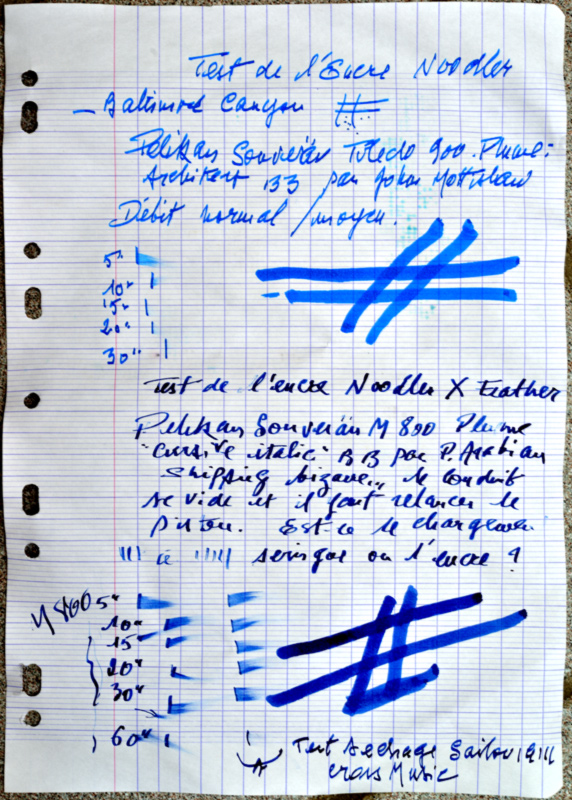 Test de l'Encre Noodler
— Baltimore Canyon #
Pelikan Souverän Toledo 900. Plume:
Architect BB par John Mottishaw
Débit normal / moyen.
5"
10"
15"
20"
30"
Test de l'encre Noodler X Feather
Pelikan Souverän M 800 Plume
"cursive italic" BB par P. Arabian
Skipping bizarre... le conduit
se vide et il faut relancer le
piston. Est-ce le chargement
seringue ou l'encre ?
M 800 5"
10"
15"
20"
30"
60"
Test séchage Sailor 1911
cross Music